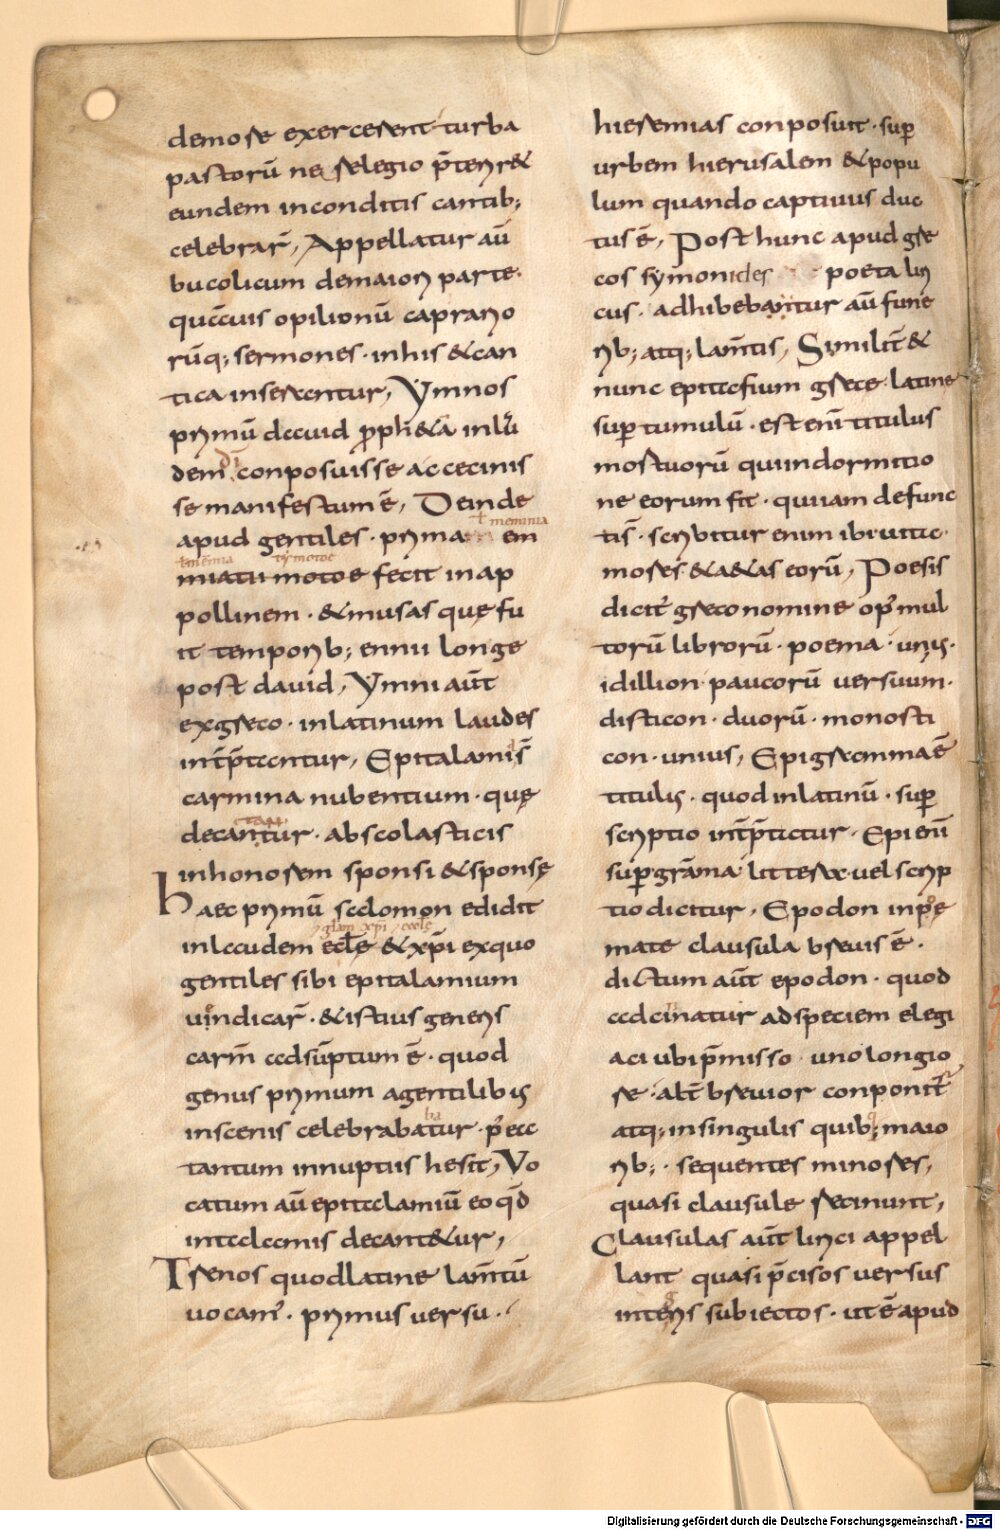 demore exercerent turba
pastorū ne religio p̄terir&
eundem inconditis cantib;
celebrar̄, Appellatur aū
bucolicum demaiori parte·
quāuis opilionū caprario
rūq; sermones· inhis &can
tica inserantur, Ymnos
primū dauid proph&a inlau
dem dī conposuisse ac cecinis
se manifestum ē, Deinde
apud gentiles· prima em
ł memmia
miatu motoe fecit inap
pollinem· &musas quę fu
it temporib; ennii longe
post dauid, Ymni aūt
exgreco· inlatinum laudes
int̄p̄tantur, Epitalamis̄
carmina nubentium· quę
decantantur· abscolasticis
inhonorem sponsi &sponsę
haec primū salomon edidit
inlaudem ecl̄ę &xp̄i exquo
gentiles sibi epitalamium
uindicar̄· &istius generis
carm̄ adsūptum ē· quod
genus primum agentilibus
inscenis celebrabatur· p̄ea
tantum innuptiis hesit, Vo
catum aū epitalamiū eo qd̄
intalamis decant&ur,
Trenos quodlatine lam̄tū
uocam'· primus uersu·
hieremias conposuit· sup̄
urbem hierusalem &popu
lum quando captiuus duc
tus ē, Post hunc apud gre
cos symonides poeta liri
cus· adhibebantur aū fune
rib; atq; lam̄tis, Similit̄ &
nunc epitafium grece· latine
sup̄ tumulū· est enī titulus
mortuorū quiindormitio
ne eorum fit· quiiam defunc
tis̄· scribitur enim ibi uita·
mores &a&as eorū, Poesis
dicit' greco nomine op' mul
torū librorū· poema· unis·
idillion paucorū uersuum·
disticon· duorū· monosti
con· unius, Epigramma ē
titulis· quod inlatinū· sup̄
scriptio int̄p̄tatur· Epi enī
sup̄ grāma litteræ uel scrip
tio dicitur, Epodon inpoe
mate clausula breuis ē·
dictum aūt epodon· quod
adcinatur adspeciem elegi
aci ubi p̄misso· uno longio
re· alt̄ breuior conponit̄
atq; insingulis quib; maio
rib;· sequentes minores,
quasi clausule recinunt,
Clausulas aūt lirici appel
lant quasi p̄cisos uersus
integris subiectos· ut ē apud
Digitalisierung gefördert durch die Deutsche Forschungsgemeinschaft - DFG